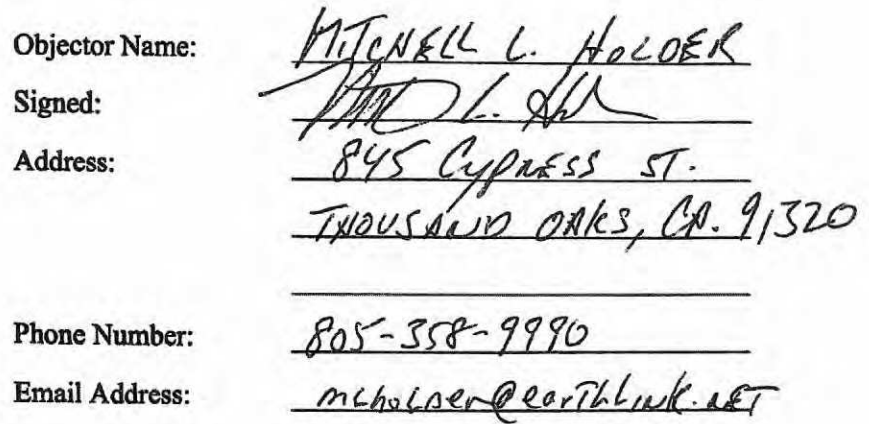 Objector Name: MITCHELL L. HOLDER
Signed:
Address: 845 CYPRESS ST.
THOUSAND OAKS, CA. 91320
Phone Number: 805-358-9990
Email Address: mLhoLDer@earthLink.NET